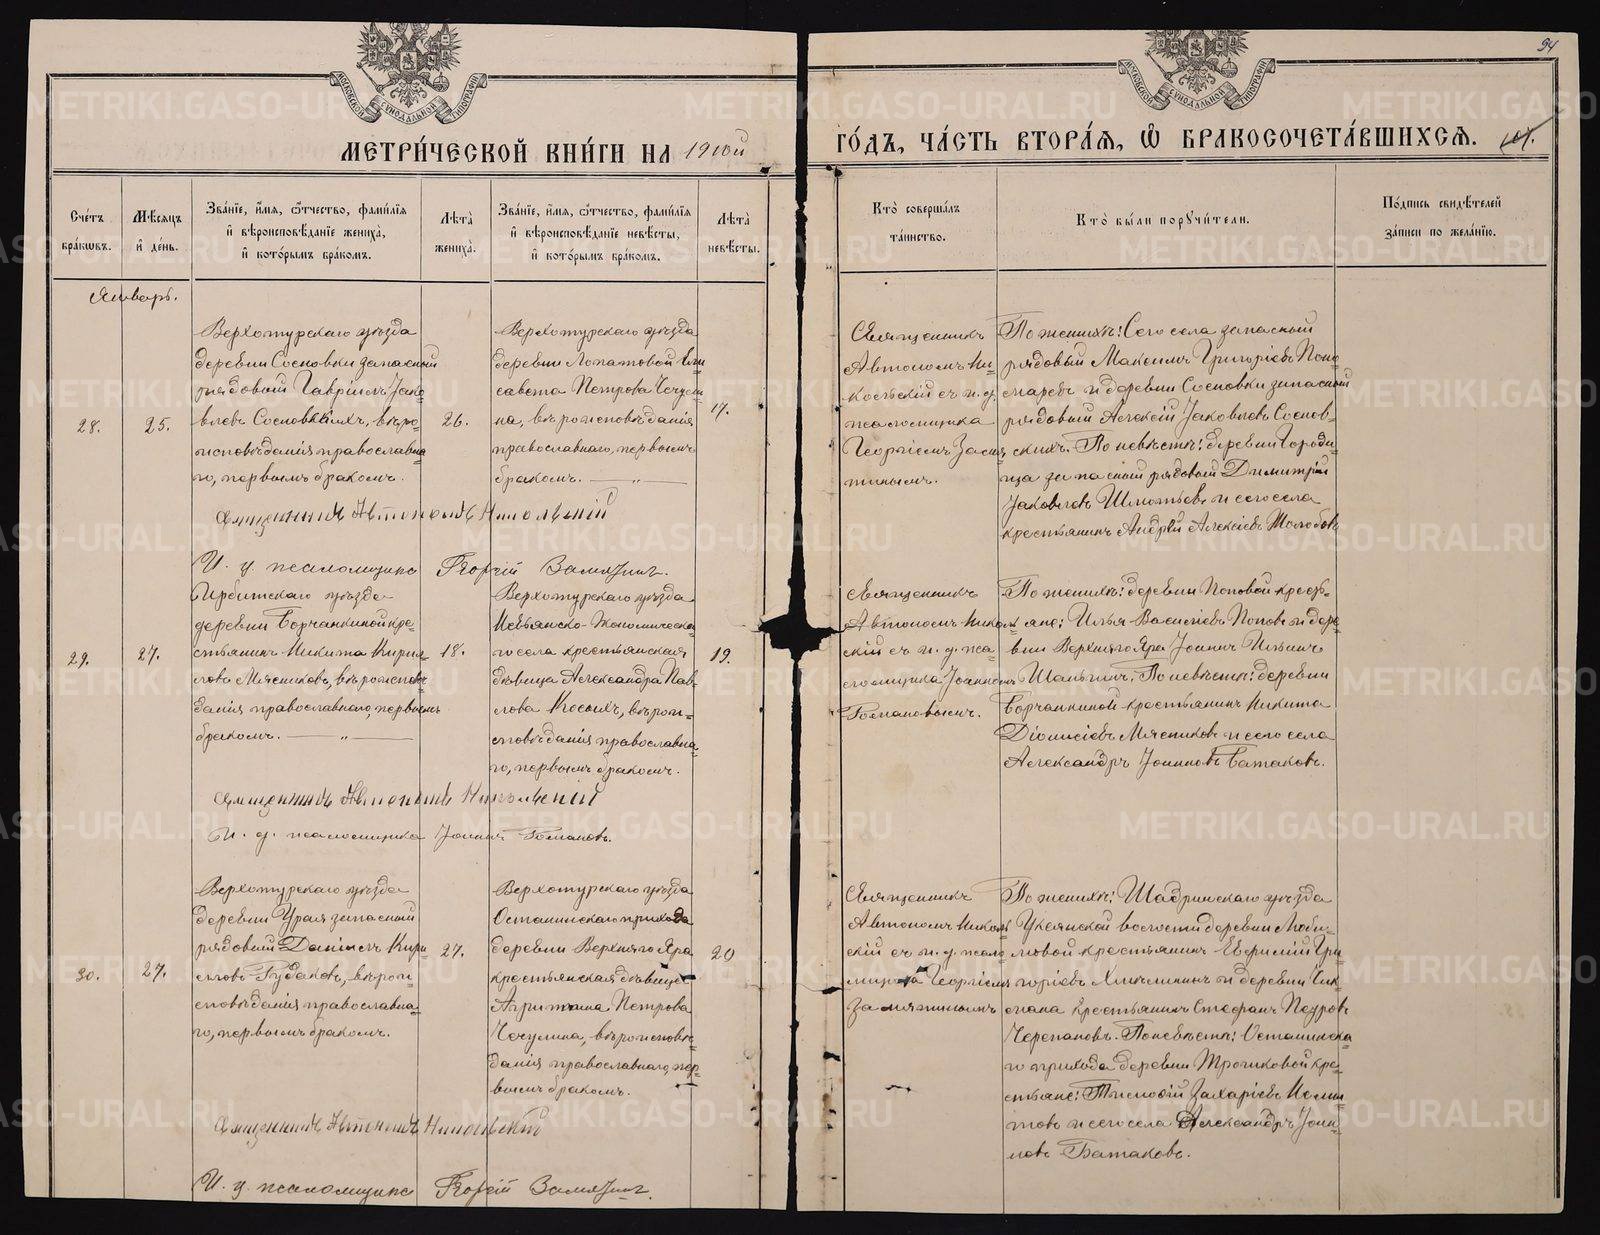 94
МОСКОВСКОЙ СѴНОДАЛЬНОЙ ТИПОГРАФІИ
МОСКОВСКОЙ СѴНОДАЛЬНОЙ ТИПОГРАФІИ
МЕТРИ́ЧЕСКОЙ КНИ́ГИ НА 1910й
ГО́ДЪ, ЧА́СТЬ ВТОРА́Я, Ѽ БРАКОСОЧЕТА́ВШИХСЯ.
Сче́тъ бра́кωвъ.
Мѣ́сяцъ и҆ де́нь.
Зва́нїе, и҆́мя, ѻ҆́тчество, фами́лїя и҆ вѣроисповѣ́данїе жениха̀, и҆ кото́рымъ бра́комъ.
Лѣ̑та жениха̀.
Зва́нїе, и҆́мя, ѻ҆́тчество, фами́лїя и҆ вѣроисповѣ́данїе невѣ́сты, и҆ кото́рымъ бра́комъ.
Лѣ̑та невѣ́сты.
Кто̀ соверша́лъ та́инство.
Кто̀ бы́ли порꙋчи́тели.
По́дпись свидѣ́телей за́писи по жела́нїю.
Январь.
28.
25.
Верхотурскаго уѣзда
деревни Сосновки запасный
рядовый Гавріилъ Іако-
влевъ Сосновскихъ, вѣро-
исповѣданія православна-
го, первымъ бракомъ.
26.
Верхотурскаго уѣзда
деревни Лопатовой Ели
савета Петрова Чечули
на, вѣроисповѣданія
православнаго, первымъ
бракомъ.
17.
Священникъ
Автономъ Ни-
кольскій съ и. д.
псаломщика
Георгіемъ Замя
тинымъ.
По женихѣ: Сего села запасный
рядовый Максимъ Григоріевъ Поно
маревъ и деревни Сосновки запасный
рядовый Алексій Іаковлевъ Соснов-
скихъ. По невѣстѣ: деревни Городи-
ща запасный рядовый Димитрій
Іаковлевъ и сего села
крестьянинъ Андрей Алексіевъ
Священникъ Автономъ Никольскій
И. д. псаломщика Георгій Замятинъ.
29.
27.
Ирбитскаго уѣзда
деревни Борчанкиной кре-
стьянинъ Никита Кирил-
ловъ Мясниковъ, вѣроисповѣ-
данія православнаго, первымъ
бракомъ.
18.
Верхотурскаго уѣзда
Невьянско-Экономическа-
го села крестьянская
дѣвица Александра Пав-
лова Косыхъ, вѣрои-
споведанія православна-
го, первымъ бракомъ.
19.
Священникъ
Автономъ Николь
скій съ и. д. пса-
ломщика Іоанномъ
Бомановымъ.
По женихѣ: деревни Поповой крест-
яне: Илья Василіевъ Поповъ и дере-
вни Верхняго Яра Іоаннъ Ильинъ
По невѣстѣ: деревни
Борчанкиной крестьянинъ Никита
Діонисіевъ Мясниковъ и сего села
Александръ Іоанновъ Батаковъ.
Священникъ Автономъ Никольскій
И. д. псаломщика Іоаннъ Бомановъ.
30.
27.
Верхотурскаго уѣзда
деревни Урая запасный
рядовый Даніилъ Кири
лловъ Рудаковъ, вѣрои-
споведанія православна-
го, первымъ бракомъ.
27.
Верхотурскаго уѣзда
Останинскаго прихода
деревни Верхняго Яра
крестьянская дѣвица
Петрова
Чечулина, вѣроисповѣ-
данія православнаго, пер-
вымъ бракомъ.
20
Священникъ
Автономъ Николь
скій съ и. д. псало
мщика Георгіемъ
Замятинымъ
По женихѣ: Шадринскаго уѣзда
Уксянской волости деревни Люби-
мовой крестьянинъ Евфимій Гри-
горіевъ и деревни
крестьянинъ Стефанъ
Черепановъ. По невѣстѣ: Останинска-
го прихода деревни Трошковой кре-
стьяне: Захаріевъ
и сего села Александръ Іоан-
новъ Батаковъ.
Священникъ Автономъ Никольскій
И. д. псаломщика Георгій Замятинъ.
METRIKI.GASO-URAL.RU